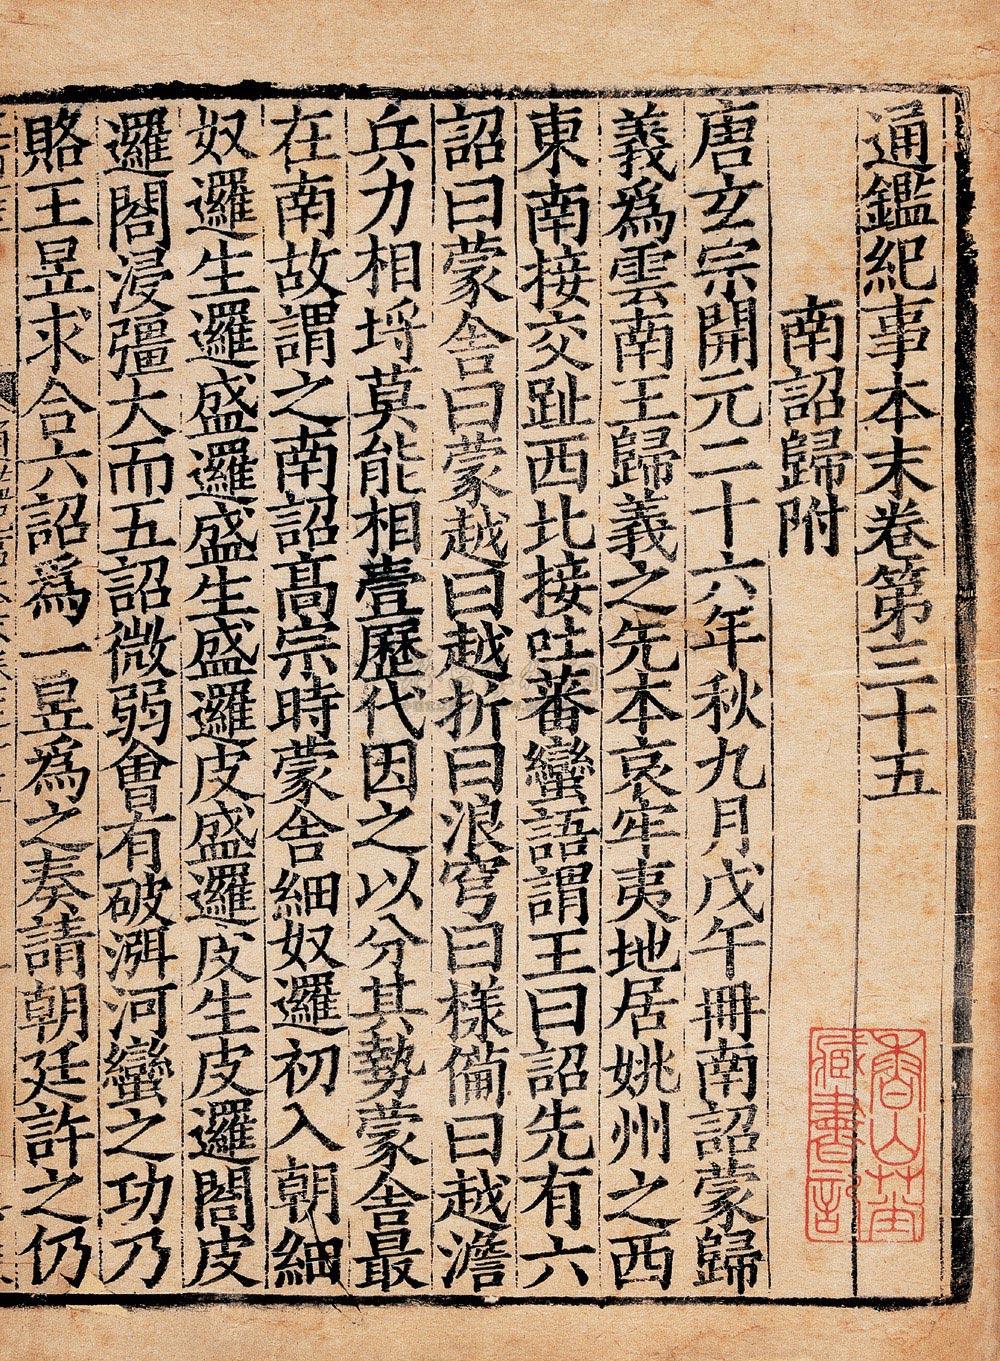 通鑑紀事本末卷第三十五
南詔歸附
唐玄宗開元二十六年秋九月戊午冊南詔蒙歸
義爲雲南王歸義之先本哀牢夷地居姚州之西
東南接交趾西北接吐蕃蠻語謂王曰詔先有六
詔曰蒙舍曰蒙越曰越折曰浪穹曰樣備曰越澹
兵力相埒莫能相壹歷代因之以分其勢蒙舍最
在南故謂之南詔高宗時蒙舍細奴邏初入朝細
奴邏生邏盛邏盛生盛邏皮盛邏皮生皮邏閤皮
邏閤浸彊大而五詔微弱會有破洱河蠻之功乃
賂王昱求合六詔爲一昱爲之奏請朝廷許之仍
香山草堂
藏書記